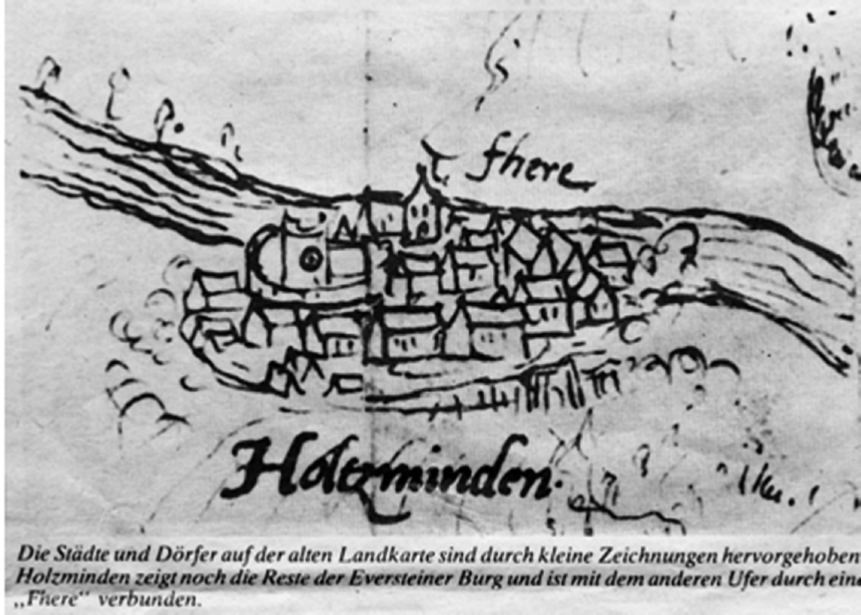 fhere
Holtzminden.
Die Städte und Dörfer auf der alten Landkarte sind durch kleine Zeichnungen hervorgehoben
Holzminden zeigt noch die Reste der Eversteiner Burg und ist mit dem anderen Ufer durch eine
„Fhere“ verbunden.